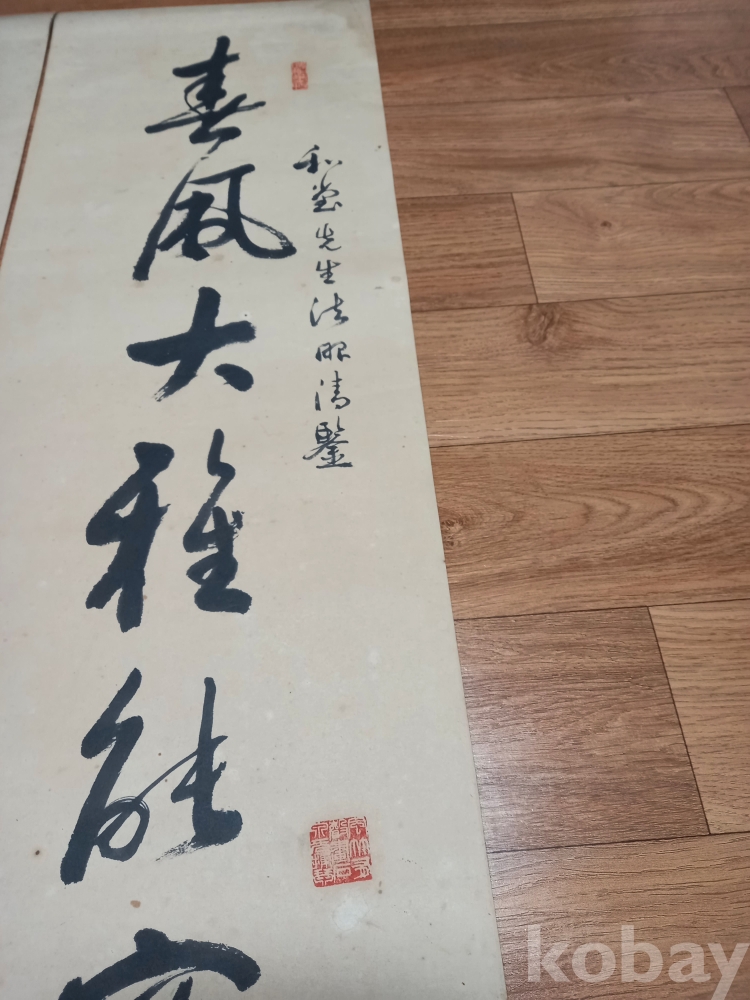 和堂先生法眼清鑒
春風大雅能容
kobay